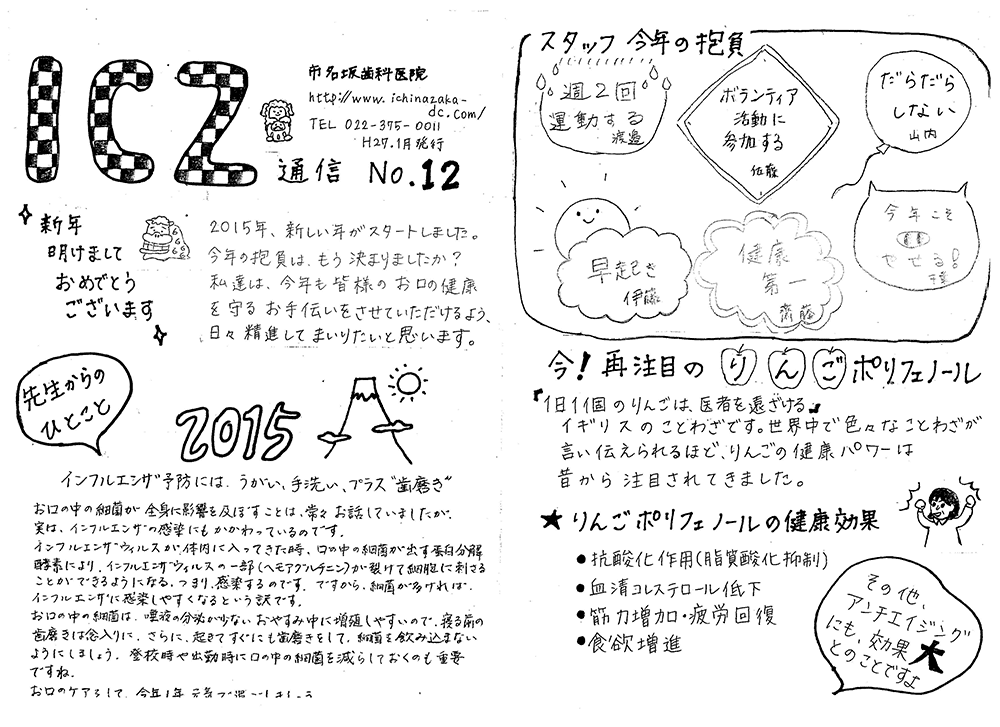 ICZ
市名坂歯科医院
http://www.ichinazaka-
dc.com/
TEL 022-375-0011
H27.1月発行
通信 No.12
新年
明けまして
おめでとう
ございます
2015年、新しい年がスタートしました。
今年の抱負は、もう決まりましたか?
私達は、今年も皆様のお口の健康
を守るお手伝いをさせていただけるよう、
日々精進してまいりたいと思います。
先生からの
ひとこと
2015
インフルエンザ予防には、うがい、手洗い、プラス"歯磨き"
お口の中の細菌が全身に影響を及ぼすことは、常々お話していましたが、
実は、インフルエンザの感染にもかかわっているのです。
インフルエンザウィルスが、体内に入ってきた時、口の中の細菌が出す蛋白分解
酵素により、インフルエンザウィルスの一部(ヘモアグルチニン)が裂けて細胞に刺さる
ことができるようになる。つまり、感染するのです。ですから、細菌が多ければ、
インフルエンザに感染しやすくなるという訳です。
お口の中の細菌は、唾液の分泌が少ないおやすみ中に増殖しやすいので、寝る前の
歯磨きは念入りに、さらに、起きてすぐにも歯磨きをして、細菌を飲み込まない
ようにしましょう。登校時や出勤時に口の中の細菌を減らしておくのも重要
ですね。
スタッフ 今年の抱負
週2回
運動する
渡邉
ボランティア
活動に
参加する
佐藤
だらだら
しない
山内
早起き
伊藤
健康
第一
齋藤
今年こそ
やせる!
千葉
今!再注目の りんごポリフェノール
『1日1個のりんごは、医者を遠ざける』
イギリスのことわざです。世界中で色々なことわざが
言い伝えられるほど、りんごの健康パワーは
昔から注目されてきました。
★りんごポリフェノールの健康効果
●抗酸化作用(脂質酸化抑制)
●血清コレステロール低下
●筋力増加・疲労回復
●食欲増進
その他、
アンチエイジング
にも、効果大
とのことですよ